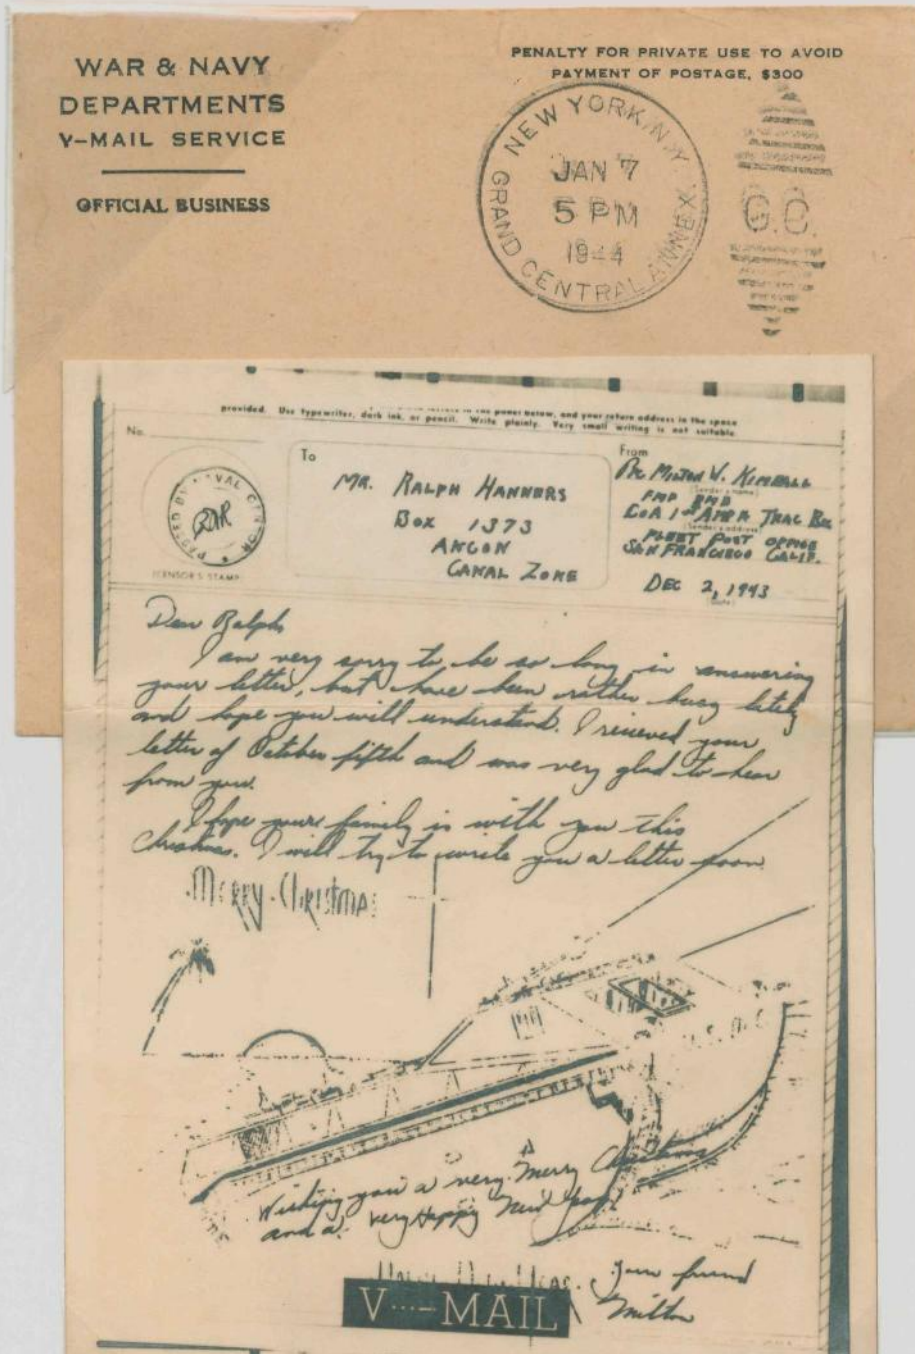 WAR & NAVY
DEPARTMENTS
V-MAIL SERVICE
OFFICIAL BUSINESS
PENALTY FOR PRIVATE USE TO AVOID
PAYMENT OF POSTAGE, $300
NEW YORK, N.Y.
JAN 7
5 PM
1944
GRAND CENTRAL ANNEX
G.C.
provided. Use typewriter, dark ink, or pencil. Write plainly. Very small writing is not suitable.
No.
PASSED BY NAVAL CENSOR
CENSOR'S STAMP
To
MR. RALPH HANNERS
BOX 1373
ANCON
CANAL ZONE
From
Pfc MILTON V. KIMBALL
(Sender's name)
CoA 1st AMPH TRAC BN
(Sender's address)
FLEET POST OFFICE
SAN FRANCISCO CALIF.
DEC 2, 1943
(Date)
Dear Ralph,
I am very sorry to be so long in answering
your letter, but have been rather busy lately
and hope you will understand. I recieved your
letter of October fifth and was very glad to hear
from you.
I hope your family is with you this
Christmas. I will try to write you a letter soon
Merry Christmas
U.S.M.C.
Wishing you a very Merry Christmas
and a very Happy New Year
Your friend
Milton
V---MAIL